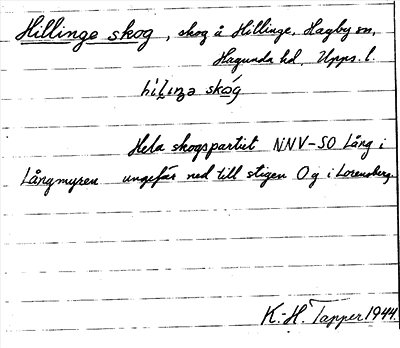 Hillinge skog, skog å Hillinge, Hagby sn,
Hagunda hd, Upps. l.
hìliŋə skóg
Hela skogspartiet NNV-SO Lång i
Långmyren ungefär ned till stigen O g i Lorensberg.
K.-H. Tapper 1944.